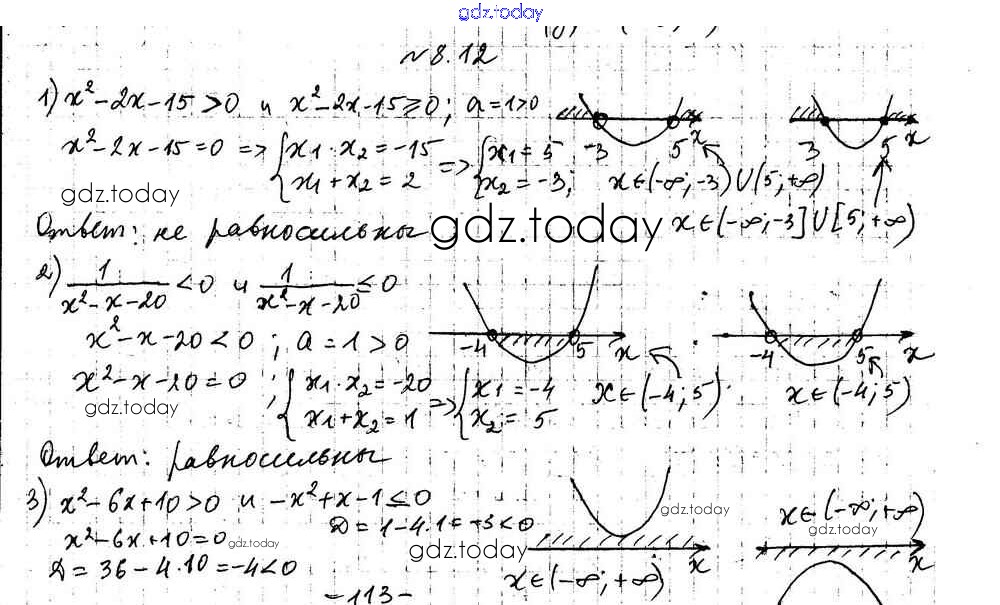 gdz.today
№ 8.12
1) x² - 2x - 15 > 0 и x² - 2x - 15 ≥ 0; a = 1 > 0
-3 5 x
3 5 x
x² - 2x - 15 = 0 => { x1 · x2 = -15 => { x1 = 5
x1 + x2 = 2 x2 = -3; x ∈ (-∞; -3) ∪ (5; +∞)
gdz.today
Ответ: не равносильны gdz.today x ∈ (-∞; -3] ∪ [5; +∞)
2) 1/(x² - x - 20) < 0 и 1/(x² - x - 20) ≤ 0
x² - x - 20 < 0; a = 1 > 0
-4 5 x
-4 5 x
x² - x - 20 = 0; { x1 · x2 = -20 => { x1 = -4 x ∈ (-4; 5) x ∈ (-4; 5)
gdz.today x1 + x2 = 1 x2 = 5
Ответ: равносильны
3) x² - 6x + 10 > 0 и -x² + x - 1 ≤ 0
gdz.today x ∈ (-∞; +∞)
gdz.today
x² - 6x + 10 = 0 gdz.today D = 1 - 4·1 = -3 < 0
gdz.today
D = 36 - 4·10 = -4 < 0 x ∈ (-∞; +∞) x x
- 113 -